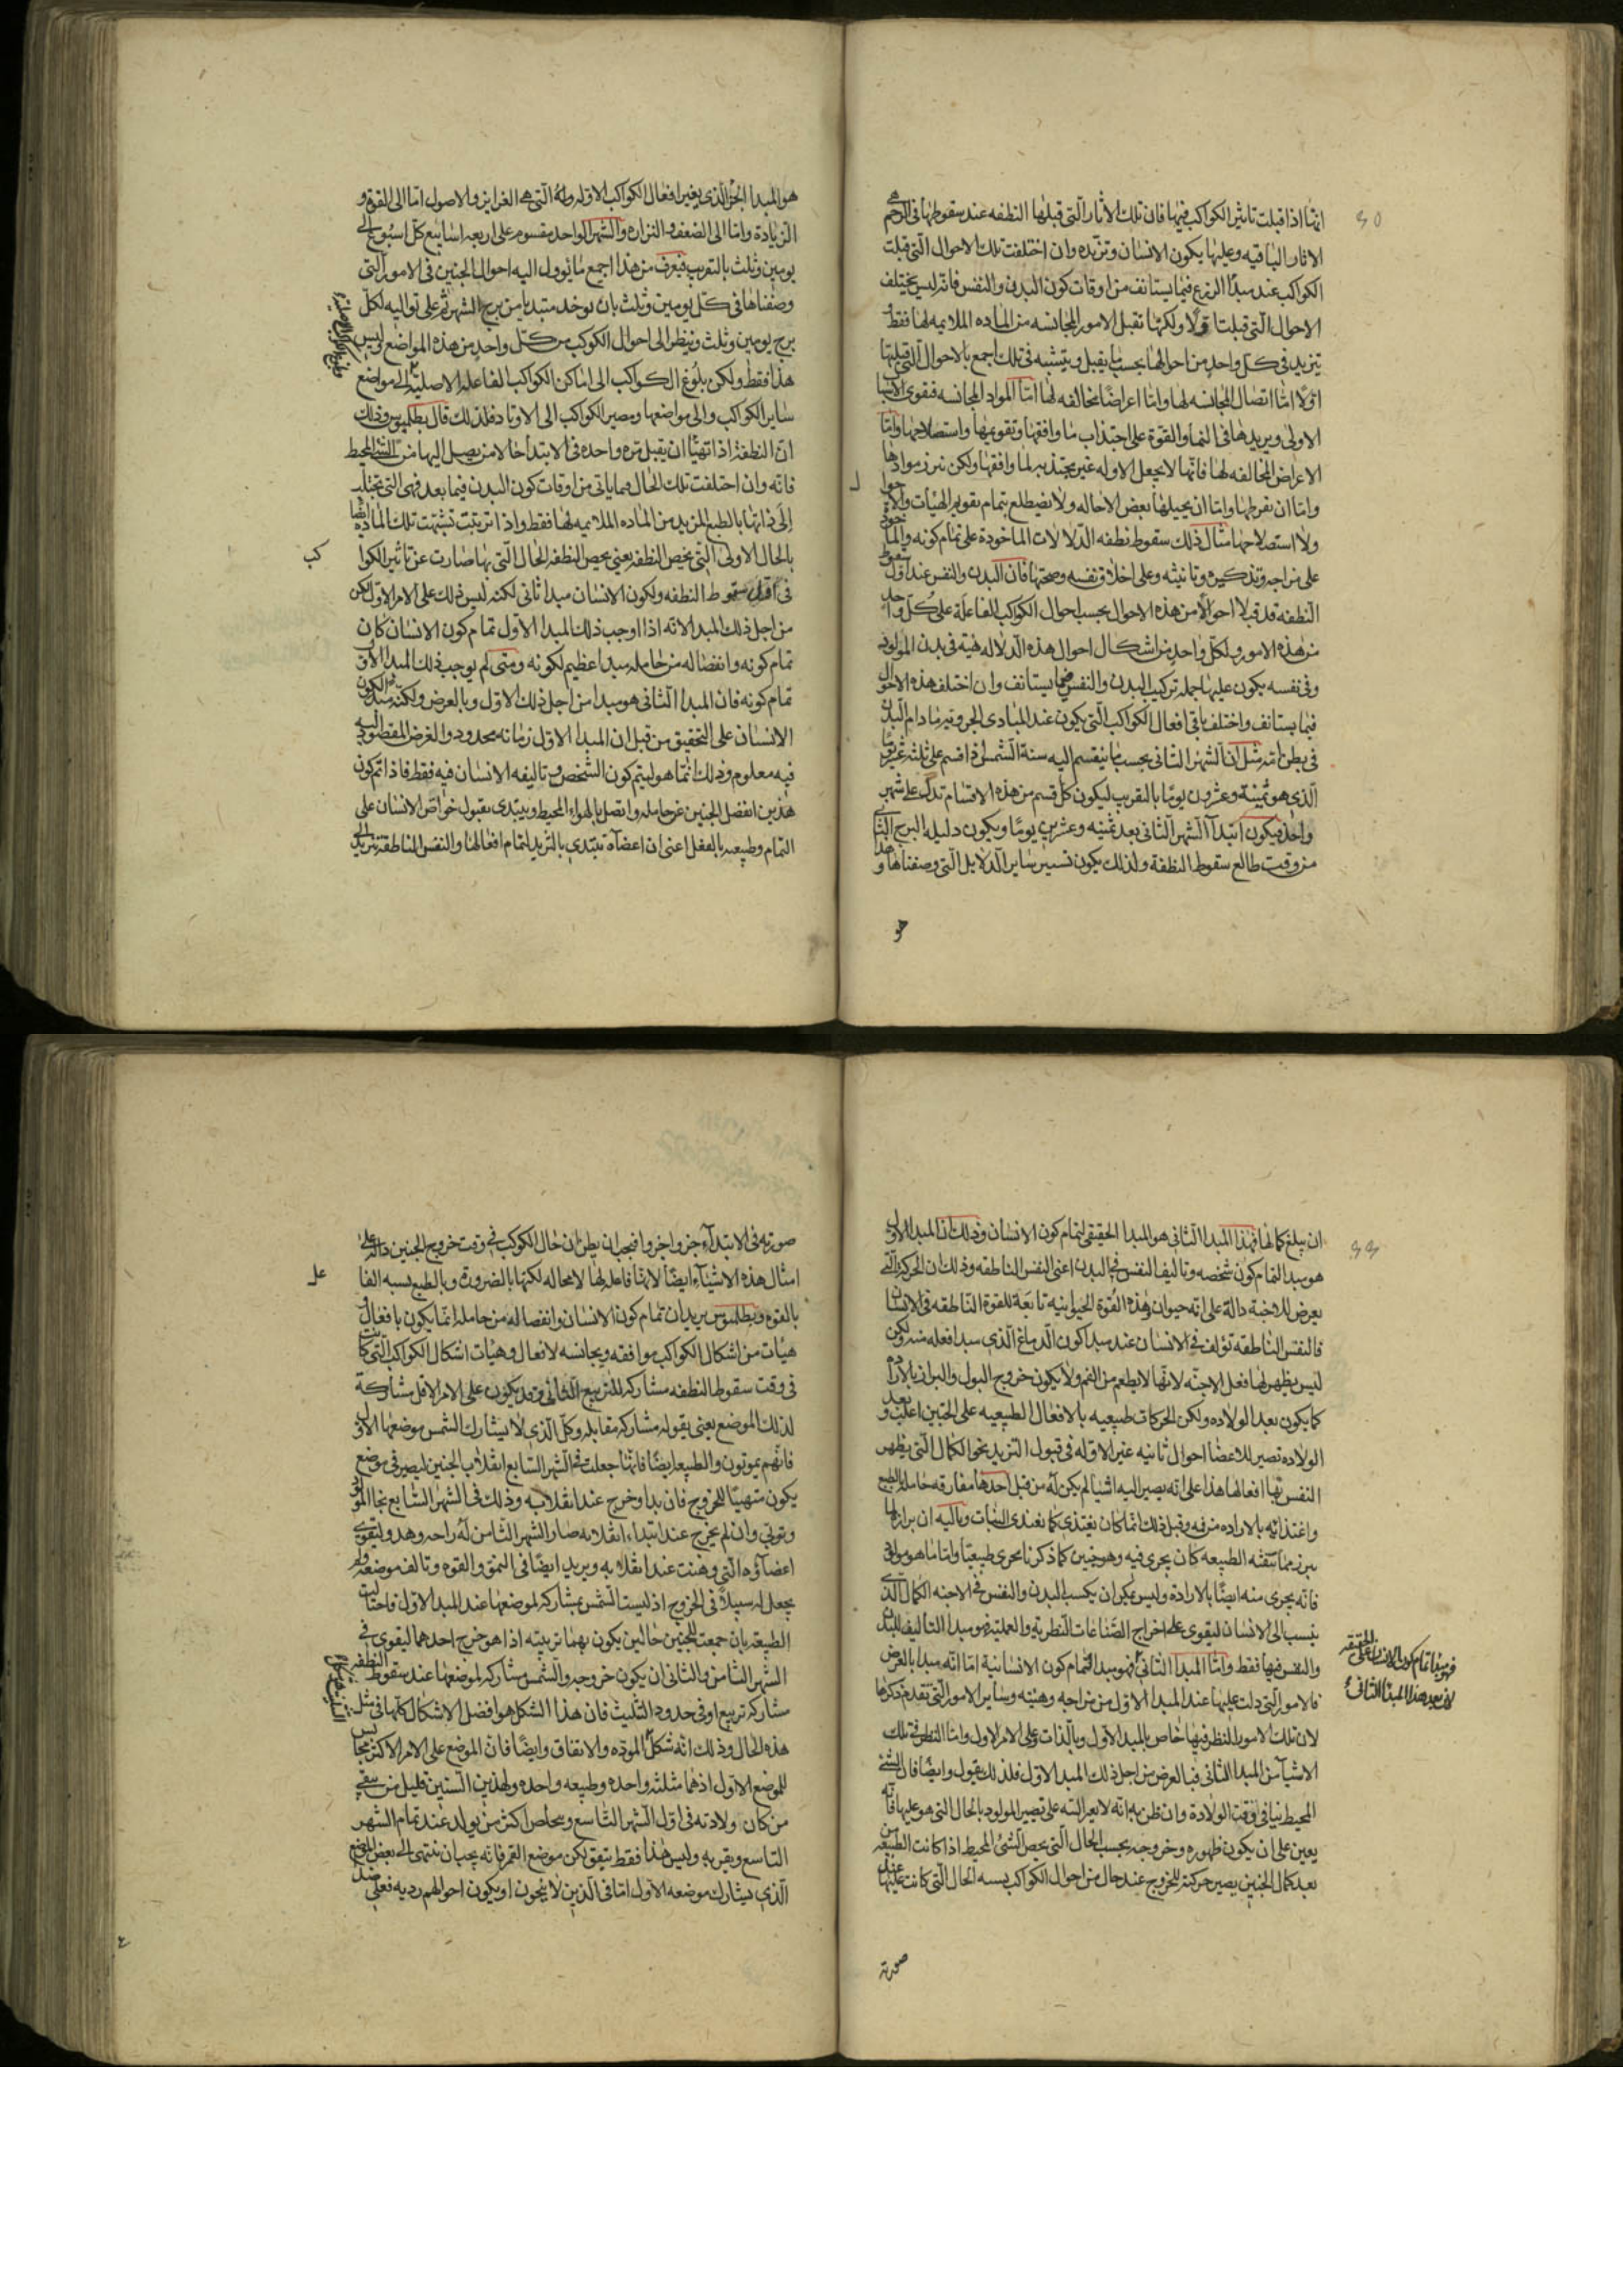 انها اذا قبلت تاثير الكواكب فيها فان تلك الاثار التى قبلها النطفه عند سقوطها فى الرحم هى
الاثار الباقيه وعليها يكون الانسان وتزيده وان اختلفت تلك الاحوال التى قبلت
الكواكب عند مبدأ الزرع فيما يستانف من اوقات كون البدن والنفس فانه ليس يختلف
الاحوال التى قبلت اولا ولكنها تقبل الامور المجانسه من الماده الملايمه لها فقط
تزيد فى كل واحد من احوالها بحسب ما يقبل ويتشبه فى تلك اجمع بالاحوال التى قبلتها
اولا امّا اتصال المجانسه لها وامّا اعراضا مخالفه لها امّا المواد المجانسه فتقوى الاشيا
الاولى ويزيدها فى النما والقوة على اجتذاب ما وافقها وتقويمها واستصلاحها وامّا
الاعراض المخالفه لها فانها لا يجعل الاوله غير مجتذبه لما وافقها ولكن موادها
وامّا ان تفرطها وامّا ان يحيلها بعض الاحاله ولا يضطلع بتمام تقويم الهيات
ولا استصلاحها مثال ذلك سقوط نطفه الدلالات الماخوذة على تمام كونه
على مزاجه وتذكيره وتانيثه وعلى اخلاق نفسه وصحتها فان البدن والنفس عند اول سقوط
النطفه قد قبلا احوالا من هذه الاحوال بحسب احوال الكواكب الفاعلة على كل واحد
من هذه الامور ولكل واحد من اشكال احوال هذه الدلاله هيئة فى بدن المولود
وفى نفسه يكون عليها جمله تركيب البدن والنفس فيما يستانف وان اختلف هذه الاحوال
فيما يستانف واختلف باقى افعال الكواكب التى يكون عند المبادى الجزوية ما دام البدن
فى بطن امّه مثل ان الشهر الثانى بحسب ما ينقسم اليه سنة الشمس اذا قسم على ثلثه عشر يومًا
الذى هو ثمنية وعشرون يومًا بالتقريب ليكون كل قسم من هذه الاقسام تدل على شهر
واحد فيكون ابتدآ الشهر الثانى بعد ثمنيه وعشرين يومًا ويكون دليله البرج الثانى
من وقت طالع سقوط النطفة ولذلك يكون تسيير ساير الدلايل التى وصفناها وهذا
هو
هو المبدا الجزؤ الذى يغير افعال الكواكب الاوله التى هى الغرايز والاصول امّا الى القوة و
الزيادة وامّا الى الضعف والنزاره والشهر الواحد مقسوم على اربعه اسابيع كل اسبوع الى
يومين وثلث بالتقريب فيعرف من هذا اجمع ما يوول اليه احوال الجنين فى الامور التى
وصفناها فى كل يومين وثلث بان يوخد مبتديا من برج الشهر ثم على تواليه لكل
برج يومين وثلث وينظر الى احوال الكوكب من كل واحد من هذه المواضع وليس
هذا فقط ولكن بلوغ الكواكب الى اماكن الكواكب الفاعله الاصلية الى مواضع
ساير الكواكب والى مواضعها ومصير الكواكب الى الاوتاد فلذلك قال بطلميوس وذلك
ان النطفة اذا تهيأ ان يقبل مرة واحده فى الابتدا حالا من يصل اليها من الشئ المحيط
فانه وان اختلفت تلك الحال فيما ياتى من اوقات كون البدن فيما بعد فهى التى تجتلب
الى ذاتها بالطبع المزيد من الماده الملايمه لها فقط واذا تربت تشبهت تلك الماده ايضا
بالحال الاولى التى يخص النطفه يعنى يخص النطفه الحال التى بها صارت عن تاثير الكواكب
فى سقوط النطفه ولكون الانسان مبدا ثانى لكنه ليس ذلك على الامر الاول لكن
من اجل ذلك المبدا لانه اذا اوجب ذلك المبدا الاول تمام كون الانسان كان
تمام كونه وانفصاله من حامله مبدا عظيم لكونه ومتى لم يوجب ذلك المبدا الاول
تمام كونه فان المبدا الثانى هو مبدا من اجل ذلك الاول وبالعرض ولكنه مبدا لكون
الانسان على التحقيق من قبل ان المبدا الاول زمانه محدود والغرض المقصود اليه
فيه معلوم وذلك انما هو ليتم كون الشخص وتاليفه الانسان فيه فقط فاذا تم كون
هذين انفصل الجنين عن حامله واتصل بالهواء المحيط ويبتدى بقبول خواص الانسان على
التمام وطبيعه بالفعل اعنى ان اعضآه تبتدى بالتزيد لتمام افعالها والنفس الناطقة تنزيد الى
ان يبلغ كمالها فهذا المبدا الثانى هو المبدا الحقيقى لتمام كون الانسان وذلك ان المبدا الاول
هو مبدا لتمام كون شخصه وتاليف النفس فى البدن اعنى النفس الناطقه وذلك ان الحركة التى
يعرض للاجنة دالة على انه حيوان وهذه القوة الحيوانيه تابعة للقوة الناطقه فى الانسان
فالنفس الناطقه تولف فى الانسان عند مبدا كون الدماغ الذى مبدا فعله منه ولكن
ليس يظهر لها فعل الاجنه لانها لا يطعم من الفم ولا يكون خروج البول والبراز بالاراده
كما يكون بعد الولاده ولكن الحركات طبيعيه بالافعال الطبيعيه على الجنين اغلب وبعد
الولاده تصير للاعضا احوال ثانيه غير الاوله فى قبول التزيد نحو الكمال التى يظهر
النفس بها افعالها هذا على انه يصير اليه اشيا لم يكن له من قبل احدها مفارقه حامله بالطبع
واغتذائه بالاراده من فمه وقبل ذلك انما كان يغتذى كما يغتذى النبات وثانيه ان برازا
يبرز مما تنقيه الطبيعه كان يجرى فيه وهو جنين كما ذكرنا مجرى طبيعيّا واما ما هو مولود
فانه يجرى منه ايضا بالارادة وليس يمكن ان يكسب البدن والنفس فى الاجنه الكمال الذى
ينسب الى الانسان ليقوى على اخراج الصناعات النظرية والعملية فهو مبدا التاليف البدن
والنفس فيها فقط وامّا المبدا الثانى فهو مبدا لتمام كون الانسانية امّا انه مبدا بالعرض
فالامور التى دلت عليها عند المبدا الاول من مزاجه وهيئه وساير الامور التى تقدم ذكرها
لان تلك الامور للنظر فيها خاص بالمبدا الاول وبالذات وعلى الامر الاول وامّا النظر فى تلك
الاشيآ من المبدا الثانى فبالعرض من اجل ذلك المبدا الاول فلذلك يقول وايضا فان الشئ
المحيط بنا فى اوقت الولادة وان ظن به انه لا يعرا البته على تصيير المولود بالحال التى هو عليها فانه
يعين على ان يكون ظهوره وخروجه بحسب الحال التى يخص الشئ المحيط اذا كانت الطبيعه
بعد كمال الجنين يصير حركته للخروج عند حال من احوال الكواكب يسبه الحال التى كانت عليها
صورته
صورته فى الابتدآء جزوا جزوا فيجب ان يظن ان حال الكوكب فى وقت خروج الجنين داله على
امثال هذه الاشيآء ايضا لا انها فاعله لها لا محاله لكنها بالضرورة وبالطبع يسبه الفاعله
بالقوه وبطلميوس يريد ان تمام كون الانسان وانفصاله من حامله انما يكون بافعال
هيئات من اشكال الكواكب موافقه ومجانسه لافعال وهيئات اشكال الكواكب التى كانت
فى وقت سقوط النطفه مشاركه للتربيع الثانى وقد يكون على الامر الاقل مشاركة
لذلك الموضع يعنى بقوله مشاركه مقابله وكل الذى لا يشارك الشمس موضعها الاول
فانهم يموتون والطبيعه ايضا فانها جعلت فى الشهر السابع انقلاب الجنين ليصير فى موضع
يكون متهيئا للخروج فان بدا وخرج عند انقلابه وذلك فى الشهر السابع نجا المولود
وتوتى وان لم يخرج عند ابتداء انقلابه صار الشهر الثامن له راحه وهدو ليتقوى
اعضآؤه التى وهنت عند انقلابه ويزيد ايضا فى النمو والقوه وتالف موضعه ولم
يجعل له سبيلا فى الخروج اذ ليست الشمس بمشاركه لموضعها عند المبدا الاول فاحتالت
الطبيعه بان جمعت للجنين حالين يكون بهما تربيته اذا هو خرج احدهما ليقوى فى
الشهر الثامن والثانى ان يكون خروجه والشمس مشاركه لموضعها عند سقوط النطفه
مشاركه تربيع او فى حدود التثليث فان هذا الشكل هو افضل الاشكال كلها فى مثل
هذه الحال وذلك انه شكل المودّه والاتفاق وايضا فان الموضع على الامر الاكثر مجانس
للموضع الاول اذهما مثلثه واحده وطبيعه واحده ولهذين السببين قليل من يبقى
من كان ولادته فى اول الشهر التاسع ويخلص اكثر من يولد عند تمام الشهر
التاسع وبقربه وليس هذا فقط يتفق لكن موضع القمر فانه يجب ان ينتهى الى بعض المواضع
الذى يشارك موضعه الاول امّا فى الذين لا ينجون او يكون احوالهم رديه فعلى ضد